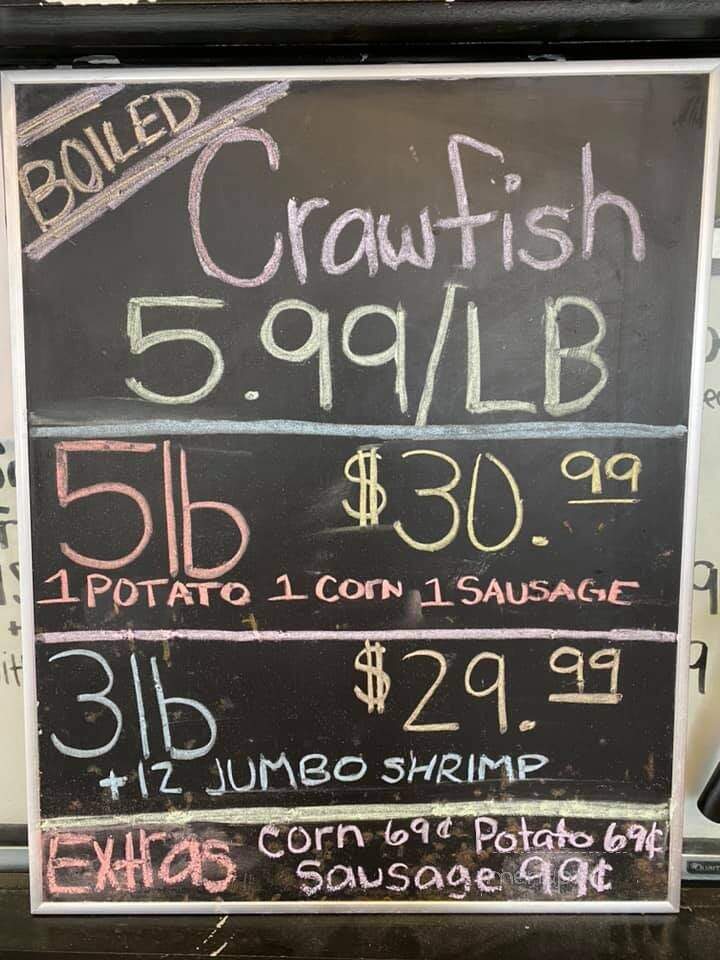 BOILED
Crawfish
5.99/LB
5lb $30.99
1 POTATO 1 COrN 1 SAUSAGE
3lb $29.99
+12 JUMBO SHRIMP
Extras Corn 69¢ Potato 69¢
Sausage 99¢